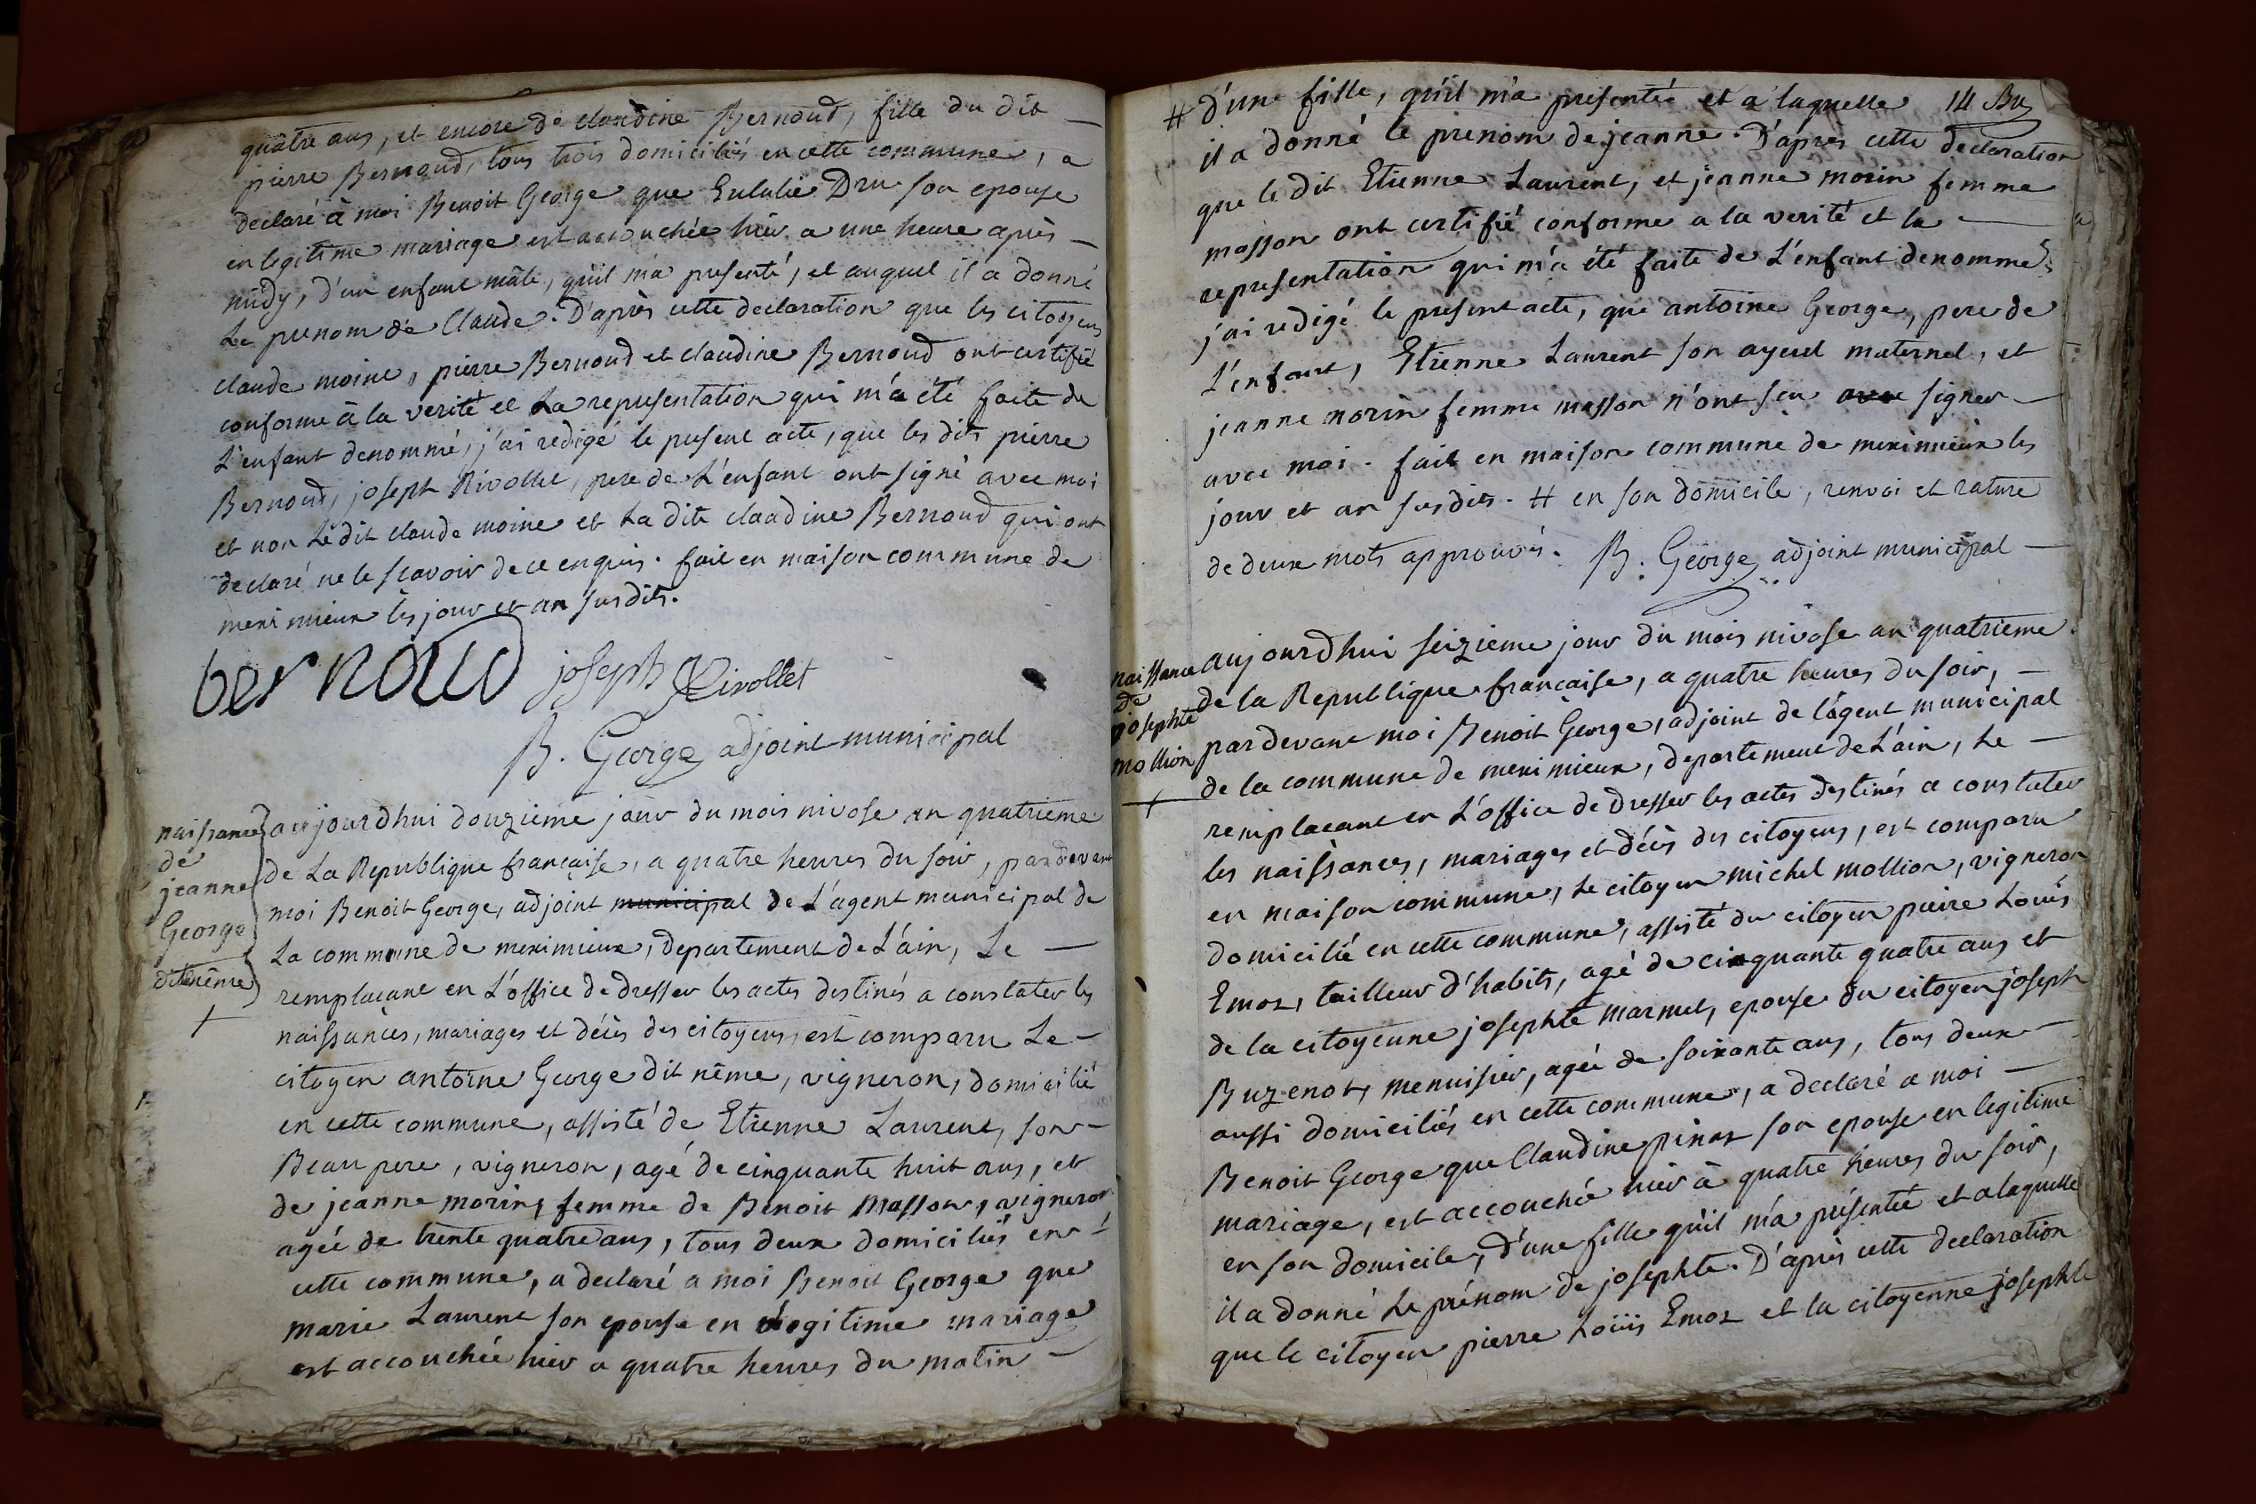 quatre ans, et encore de claudine Bernoud, fille du dit
pierre Bernoud, tous trois domiciliés en cette commune, a
declaré à moi Benoit George que Eulalie Dru son epouse
en legitime mariage est accouchée hier a une heure après
midy, d'un enfant mâle, qu'il m'a presenté, et auquel il a donné
Le prenom de Claude. D'après cette declaration que les citoyens
claude moine, pierre Bernoud et claudine Bernoud ont certifié
conforme à la verité et La representation qui m'a été faite de
L'enfant denommé, j'ai redigé le present acte, que les dits pierre
Bernoud, joseph Rivollet, pere de L'enfant ont signé avec moi
et non Le dit claude moine et La dite claudine Bernoud qui ont
declaré ne le scavoir de ce enquis. fait en maison commune de
meximieux les jour et an susdits.
bernoud joseph Rivollet
B. George adjoint municipal
naissance
de
jeanne
George
dit nême
aujourdhui douzieme jour du mois nivose an quatrieme
de La Republique française, a quatre heures du soir, pardevant
moi Benoit George, adjoint municipal de L'agent municipal de
La commune de meximieux, departement de L'ain, Le
remplacant en L'office de dresser les actes destinés a constater les
naissances, mariages et décès des citoyens, est comparu Le
citoyen antoine George dit nême, vigneron, domicilié
en cette commune, assisté de Etienne Laurent, son
Beau pere, vigneron, agé de cinquante huit ans, et
de jeanne morin, femme de Benoit Masson, vigneron
agée de trente quatre ans, tous deux domiciliés en
cette commune, a declaré a moi Benoit George que
marie Laurent son epouse en légitime mariage
est accouchée hier a quatre heures du matin
# d'une fille, qu'il m'a presentée et a laquelle 14
il a donné le prenom de jeanne. D'apres cette declaration
que le dit Etienne Laurent, et jeanne morin femme
masson ont certifié conforme a la verité et la
representation qui m'a été faite de L'enfant denommé,
j'ai redigé le present acte, que antoine George, pere de
L'enfant, Etienne Laurent son ayeul maternel, et
jeanne morin femme masson n'ont sçu signer
avec moi. fait en maison commune de meximieux les
jour et an susdits. # en son domicile, renvoi et rature
de deux mots approuvés. B. George adjoint municipal
naissance
de
josephte
mollion
aujourdhui seizieme jour du mois nivose an quatrieme
de la Republique francaise, a quatre heures du soir,
pardevant moi Benoit George, adjoint de l'agent municipal
de la commune de meximieux, departement de L'ain, Le
remplacant en L'office de dresser les actes destinés a constater
les naissances, mariages et décès des citoyens, est comparu
en maison commune, Le citoyen michel mollion, vigneron
domicilié en cette commune, assisté du citoyen pierre Louis
Emoz, tailleur d'habits, agé de cinquante quatre ans et
de la citoyenne josephte marmet, epouse du citoyen joseph
Buzenot, menuisier, agée de soixante ans, tous deux
aussi domiciliés en cette commune, a declaré a moi
Benoit George que Claudine pinaz son epouse en legitime
mariage, est accouchée hier à quatre heures du soir,
en son domicile, d'une fille qu'il m'a présentée et a laquelle
il a donné Le prénom de josephte. D'après cette declaration
que le citoyen pierre Loüis Emoz et la citoyenne josephte